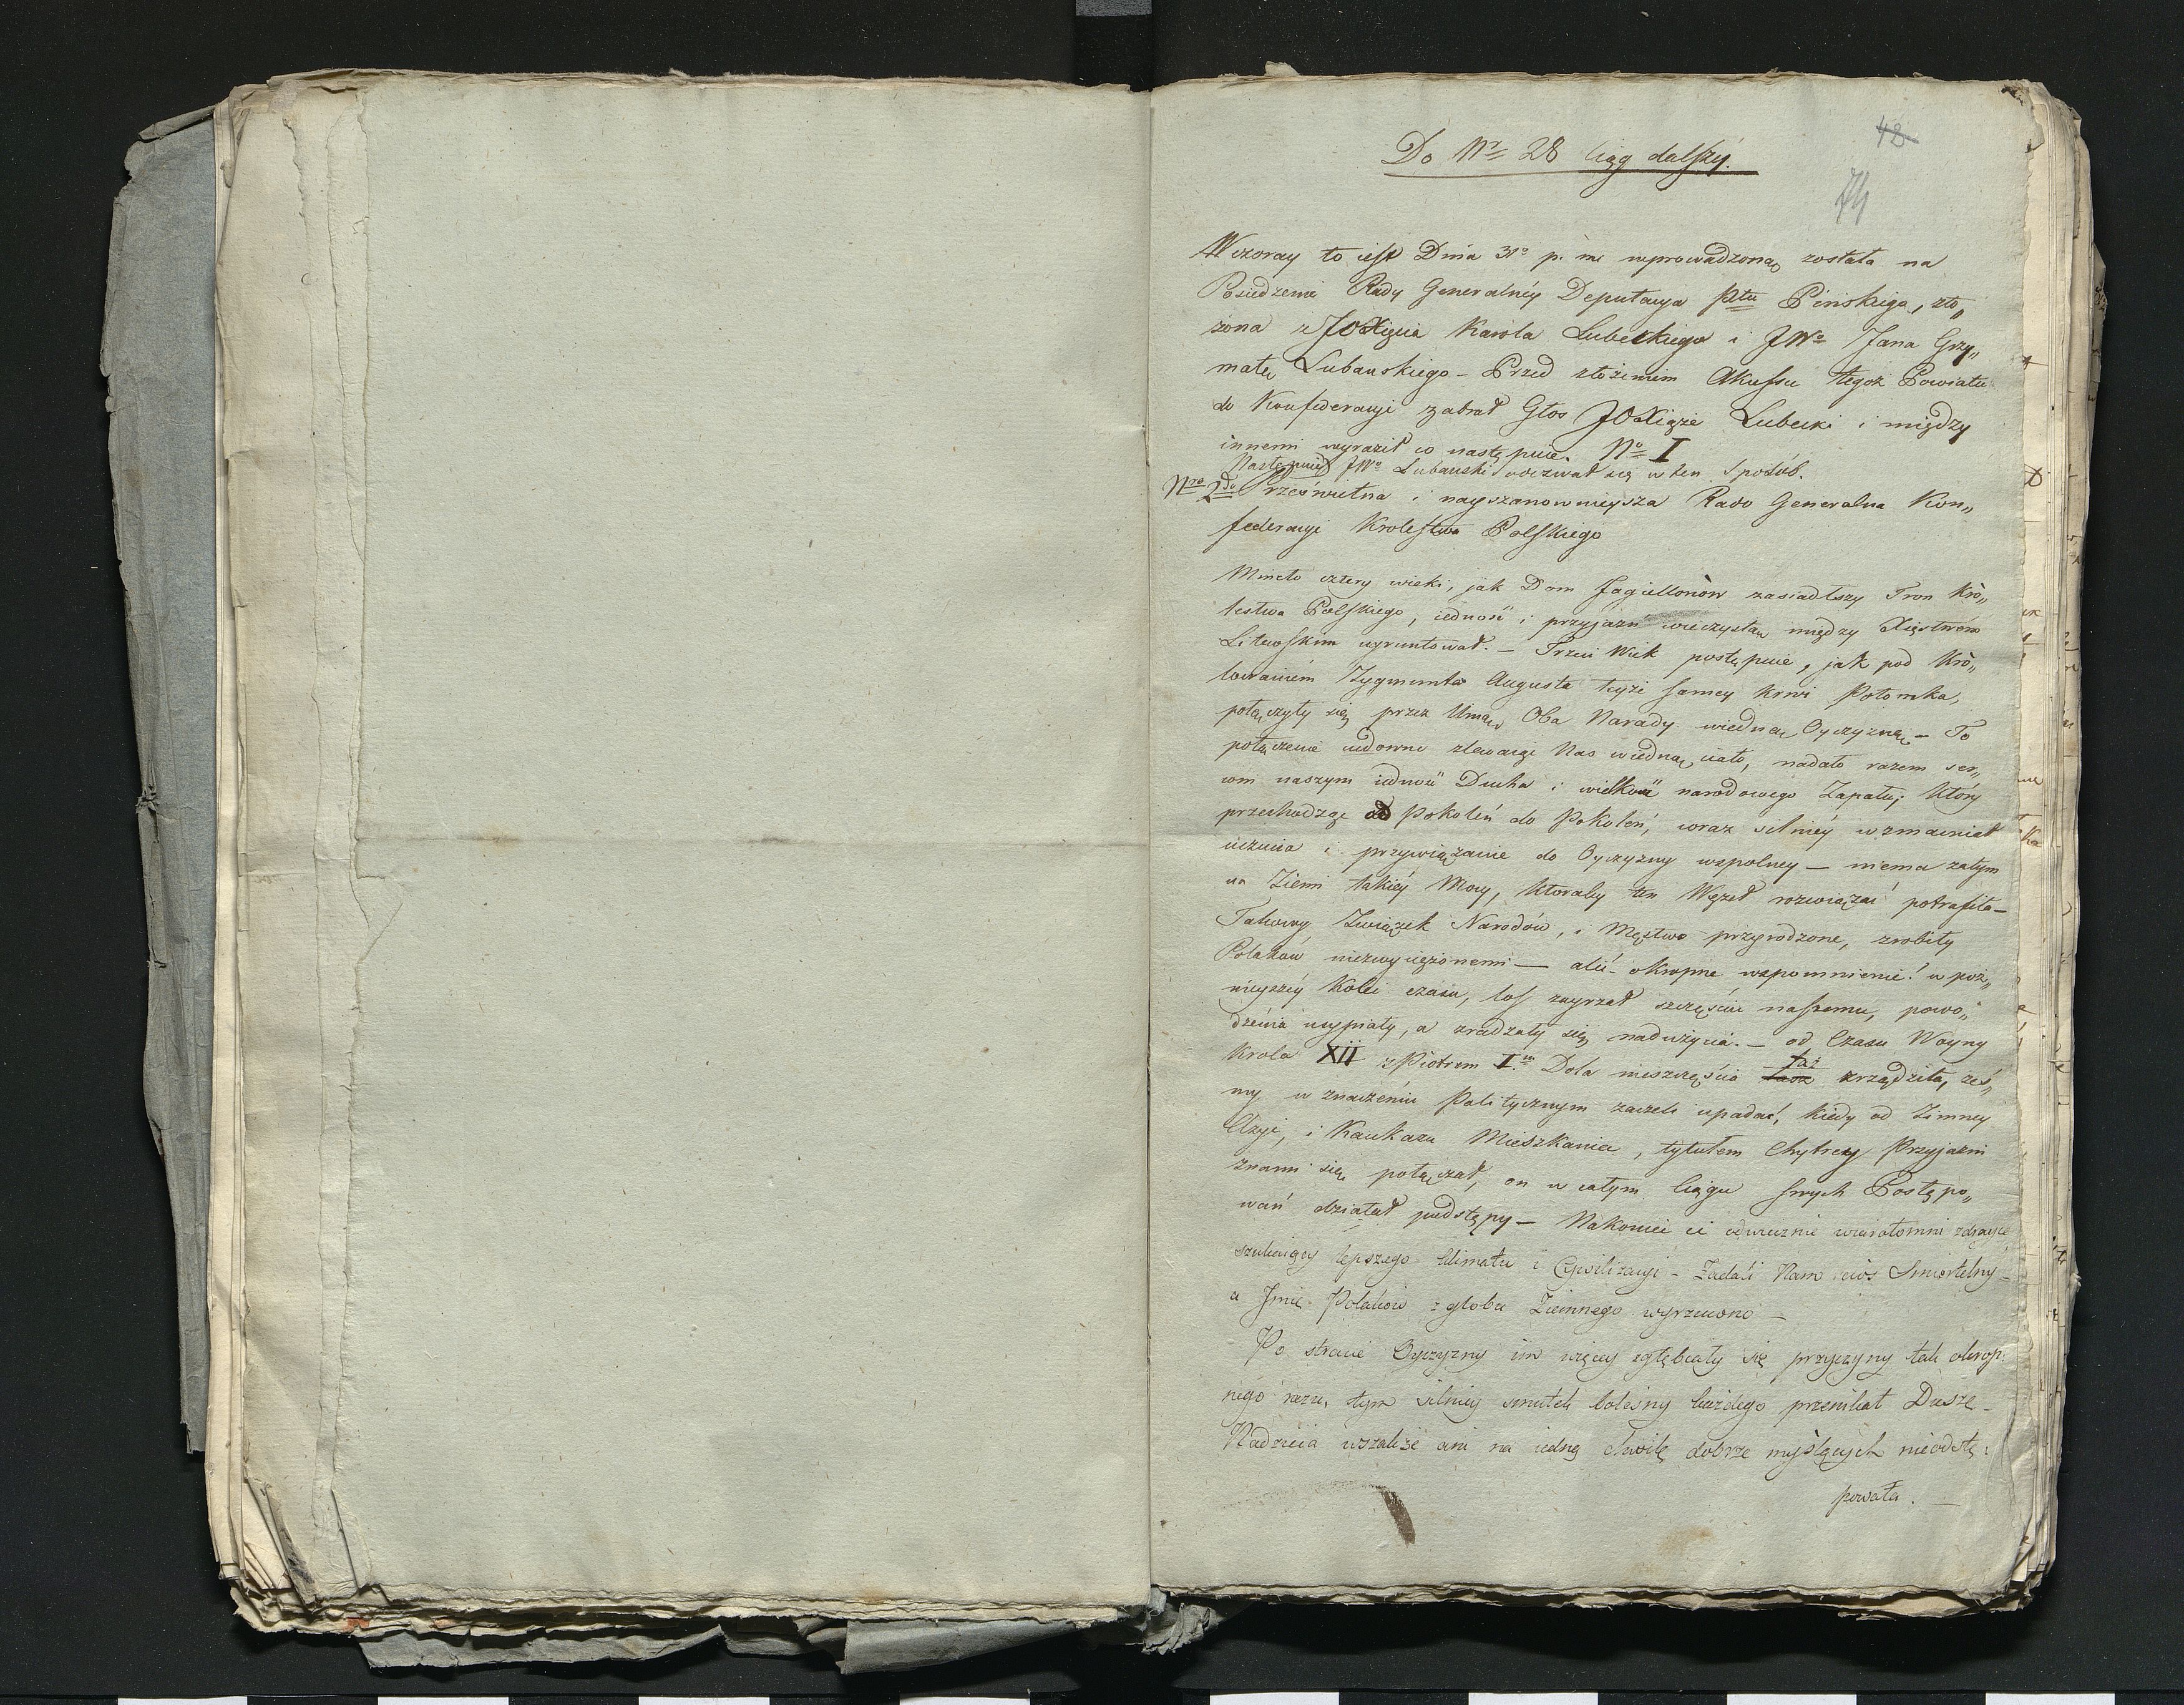 48
Do Nr 28 Ciąg dalszy.
74
Wczoray to iest Dnia 31o p. m. wprowadzona została na
Posiedzenie Rady Generalnéy Deputacya Ptu Pińskiego, zło„
żona z JOXięcia Karola Lubeckiego i JWo Jana Grzy„
mały Lubanskiego – Przed złożeniem Akcessu tegoż Powiatu
do Konfederacyi zabrał Głos JOXiąże Lubecki i między
innemi wyraził co następuie. No I
Następnie JWo Lubanski odezwał się w ten Sposób.
Nro 2do Prześwietna i nayszanownieysza Rado Generalna Kon„
federacyi Krolestwa Polskiego
Mineło cztery wieki, jak Dom Jagiellonòw zasiadłszy Tron Kró„
lestwa Polskiego, iedność i przyjaźń wieczystą między Xięstwem
Litewskim ugruntował. – Trzeci Wiek postępuie, jak pod Kró„
lowaniem Zygmunta Augusta teyże samey krwi Potomka,
połączyły się przez Unią Oba Narody wiedną Oyczyznę – To
połączenie cudowne zlewaiąc Nas wiedno ciało, nadało razem ser„
com naszym iedność Ducha i wielkość narodowego Zapału; który
przechodząc od Pokoleń do Pokoleń, coraz silniéy wzmacniał
uczucia i przywiązanie do Oyczyzny wspolney – niema zatym
na Ziemi takiéy Mocy, ktoraby ten Węzeł rozwiązać potrafiła –
Takowy Związek Narodów, i Męztwo przyrodzone, zrobiły
Polaków niezwyciężonemi – alić okropne wspomnienie! w póź„
nieyszéy Kolei czasu, los zayrzał szczęściu naszemu, powo„
dzenia usypiały, a zradzały się nadużycia. – od Czasu Woyny
Krola XII z Piotrem I.m Dola nieszczęścia tak zrządziła, żeś„
my w znaczeniu Politycznym zaczeli upadać, kiedy od Zimney
Azyi, i Kaukazu Mieszkaniec, tytułem Chytrey Przyjaźni
znami się połączał, on w całym Ciągu swych Postępo„
wań działał podstępy – Nakoniec ci odwiecznie wiarołomni zdraycy
szukaiący lepszego klimatu i Cywilizacyi – Zadali Nam cios Smiertelny –
a Imie Polaków z globu Ziemnego wyrzucono –
Po stracie Oyczyzny im więcey zgłębiały się przyczyny tak okrop:
nego razu, tym silniey smutek bolesny każdego przenikał Duszę –
Nadzieia wszakże ani na iedną chwilę dobrze myślących nieodstę:
powała. –